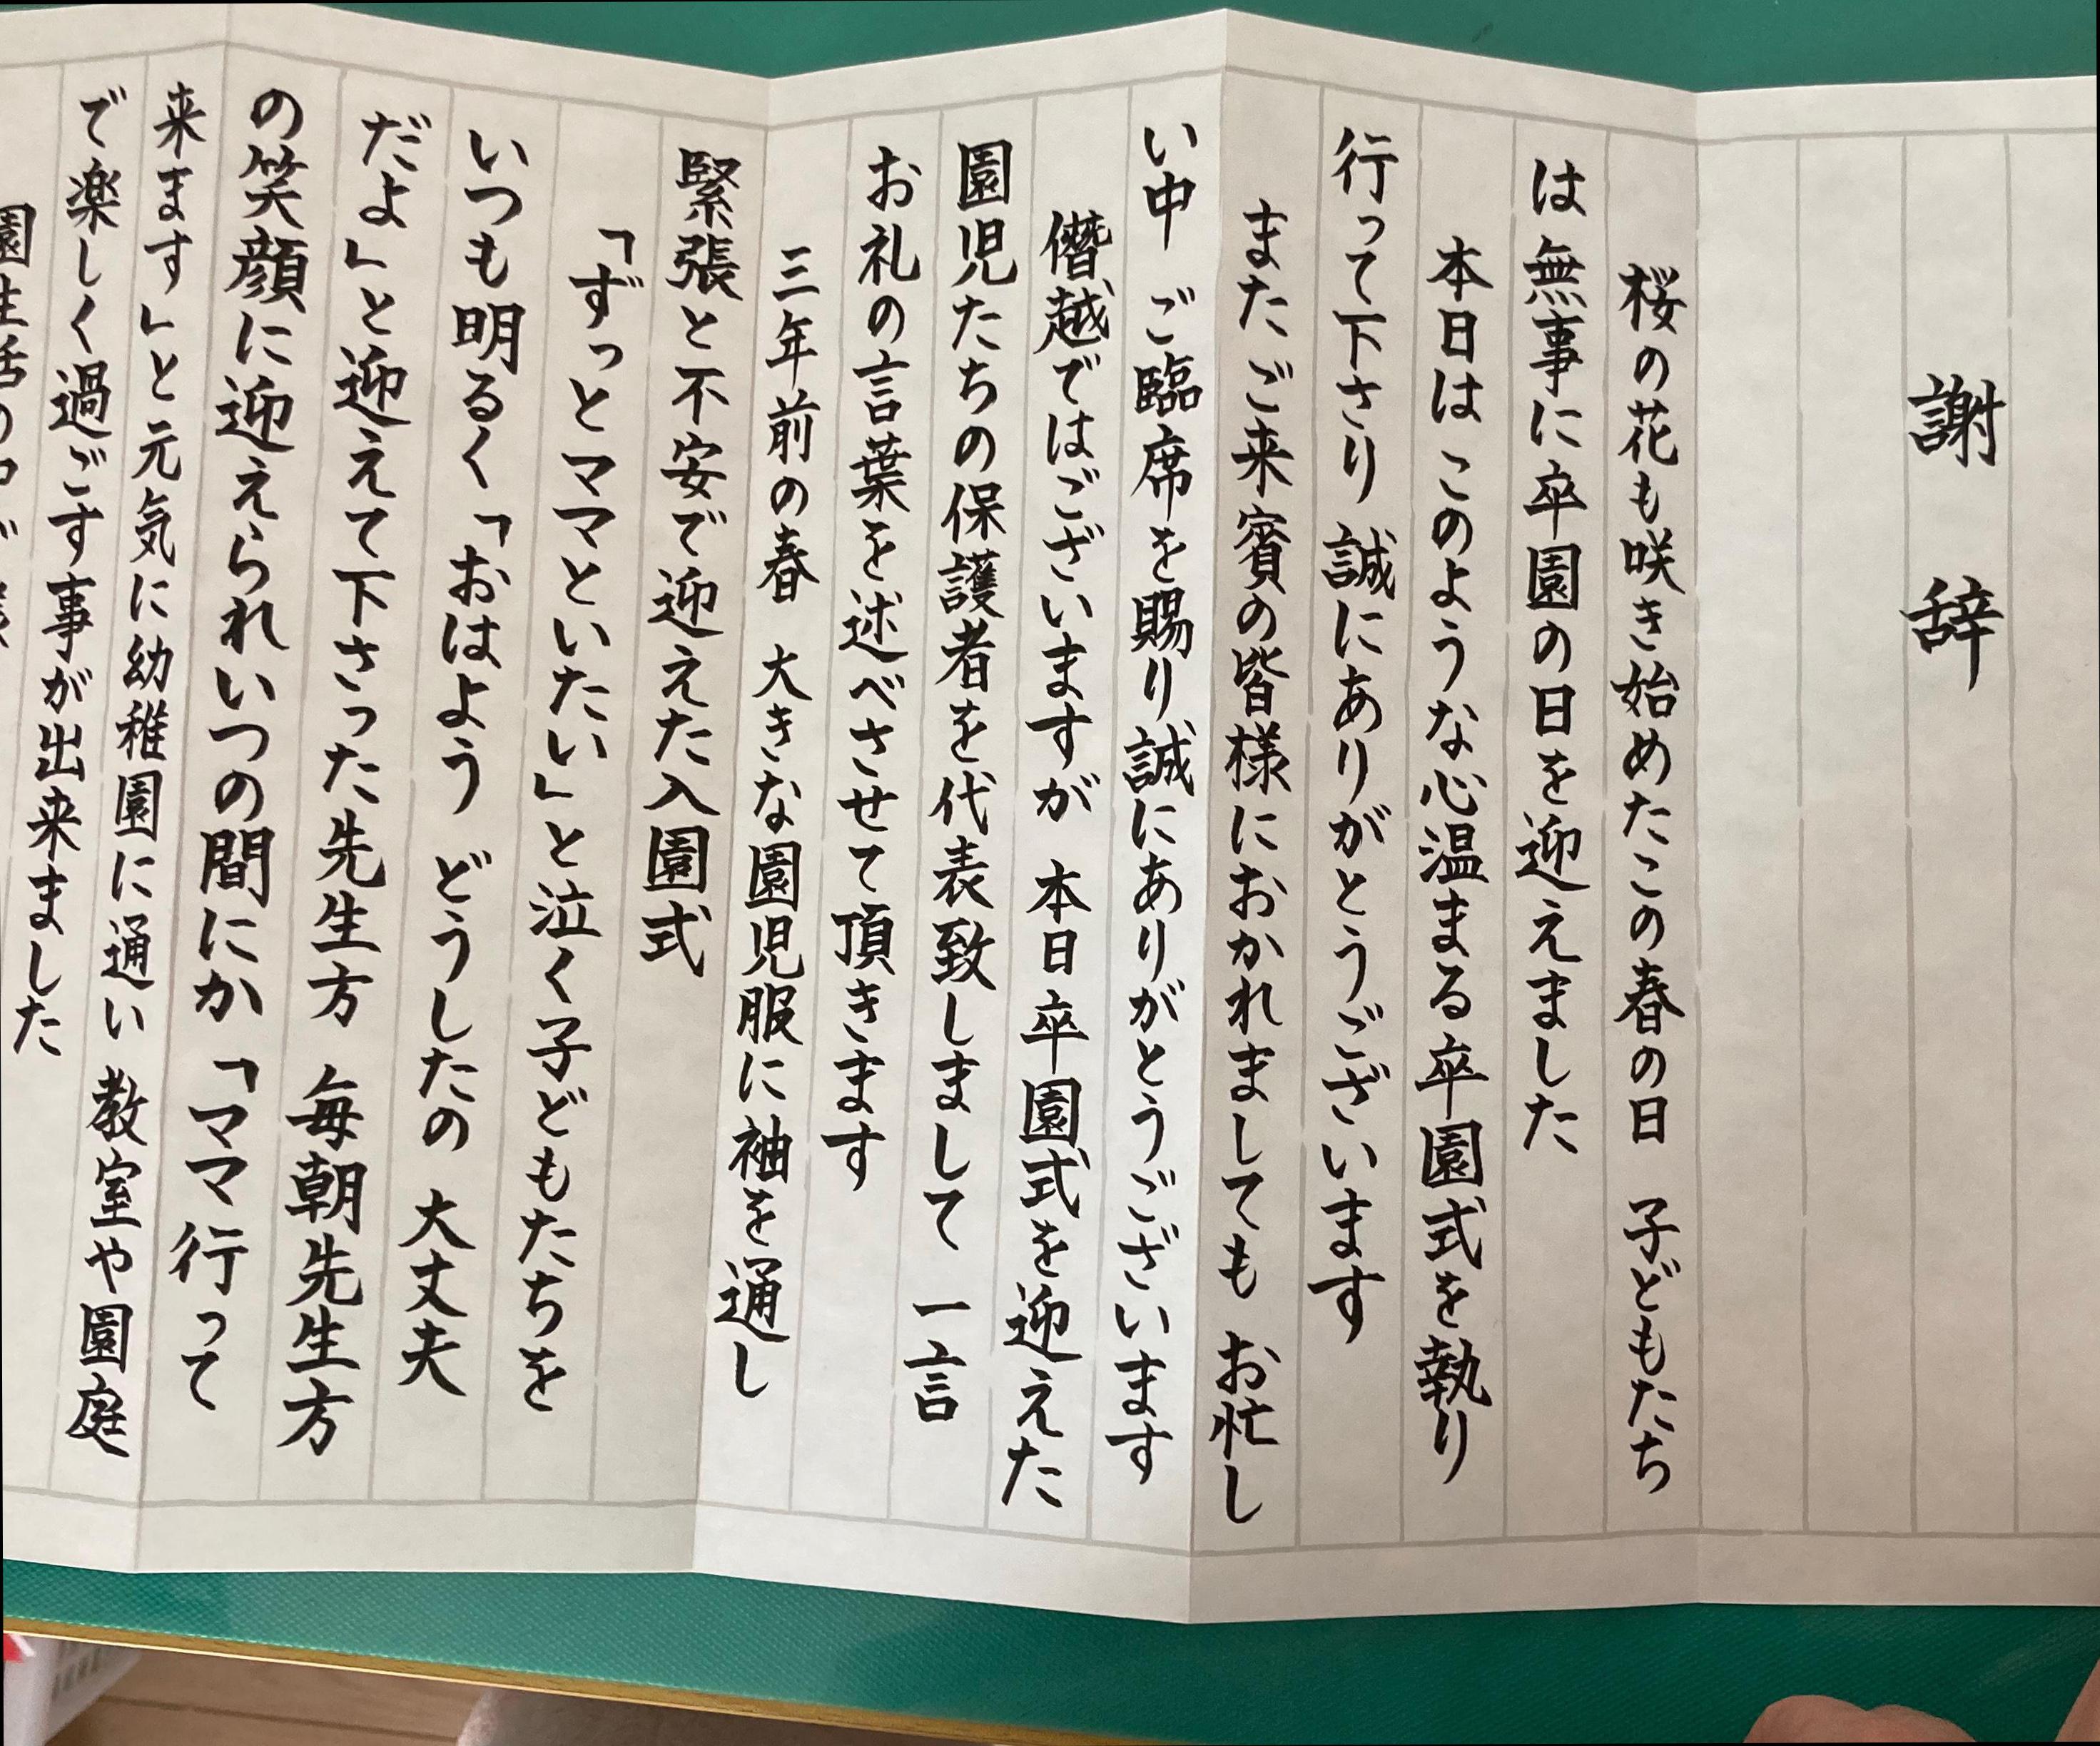 謝辞
桜の花も咲き始めたこの春の日 子どもたち
は無事に卒園の日を迎えました
本日は このような心温まる卒園式を執り
行って下さり 誠にありがとうございます
またご来賓の皆様におかれましても お忙し
い中 ご臨席を賜り誠にありがとうございます
僭越ではございますが 本日卒園式を迎えた
園児たちの保護者を代表致しまして 一言
お礼の言葉を述べさせて頂きます
三年前の春 大きな園児服に袖を通し
緊張と不安で迎えた入園式
「ずっとママといたい」と泣く子どもたちを
いつも明るく「おはよう どうしたの 大丈夫
だよ」と迎えて下さった先生方 毎朝先生方
の笑顔に迎えられいつの間にか「ママ行って
来ます」と元気に幼稚園に通い 教室や園庭
で楽しく過ごす事が出来ました
園生活の中で